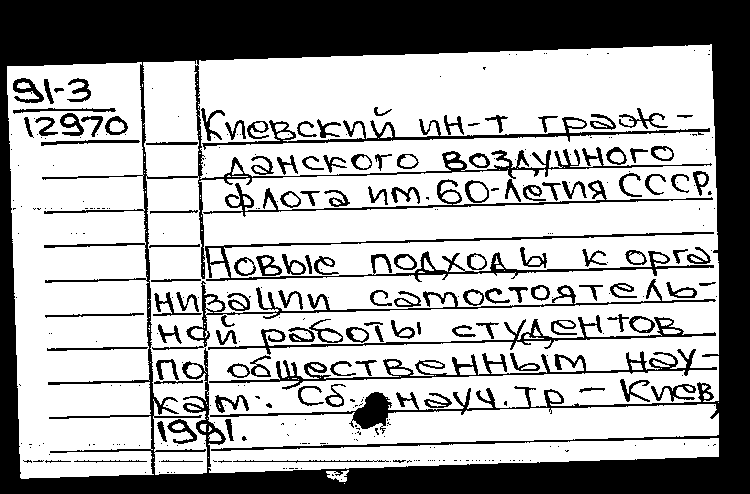 91-3
12970
Киевский ин-т граж-
данского воздушного
флота им. 60-летия СССР.
Новые подходы к орга-
низации самостоятель-
ной работы студентов
по общественным нау-
кам: Сб. науч. тр. - Киев,
1991.